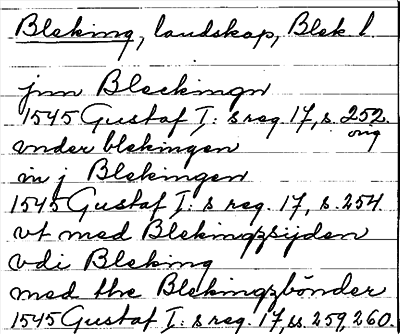 Bleking, landskap, Blek l.
jnn Bleckingn
1545 Gustaf I:s reg. 17, s. 252.
orig
vnder blekingen
in j Blekingen
1545 Gustaf I:s reg. 17, s. 254.
vt med Blekingzsijden
vdi Bleking
med the Blekingzbönder
1545 Gustaf I:s reg. 17, ss. 259, 260.